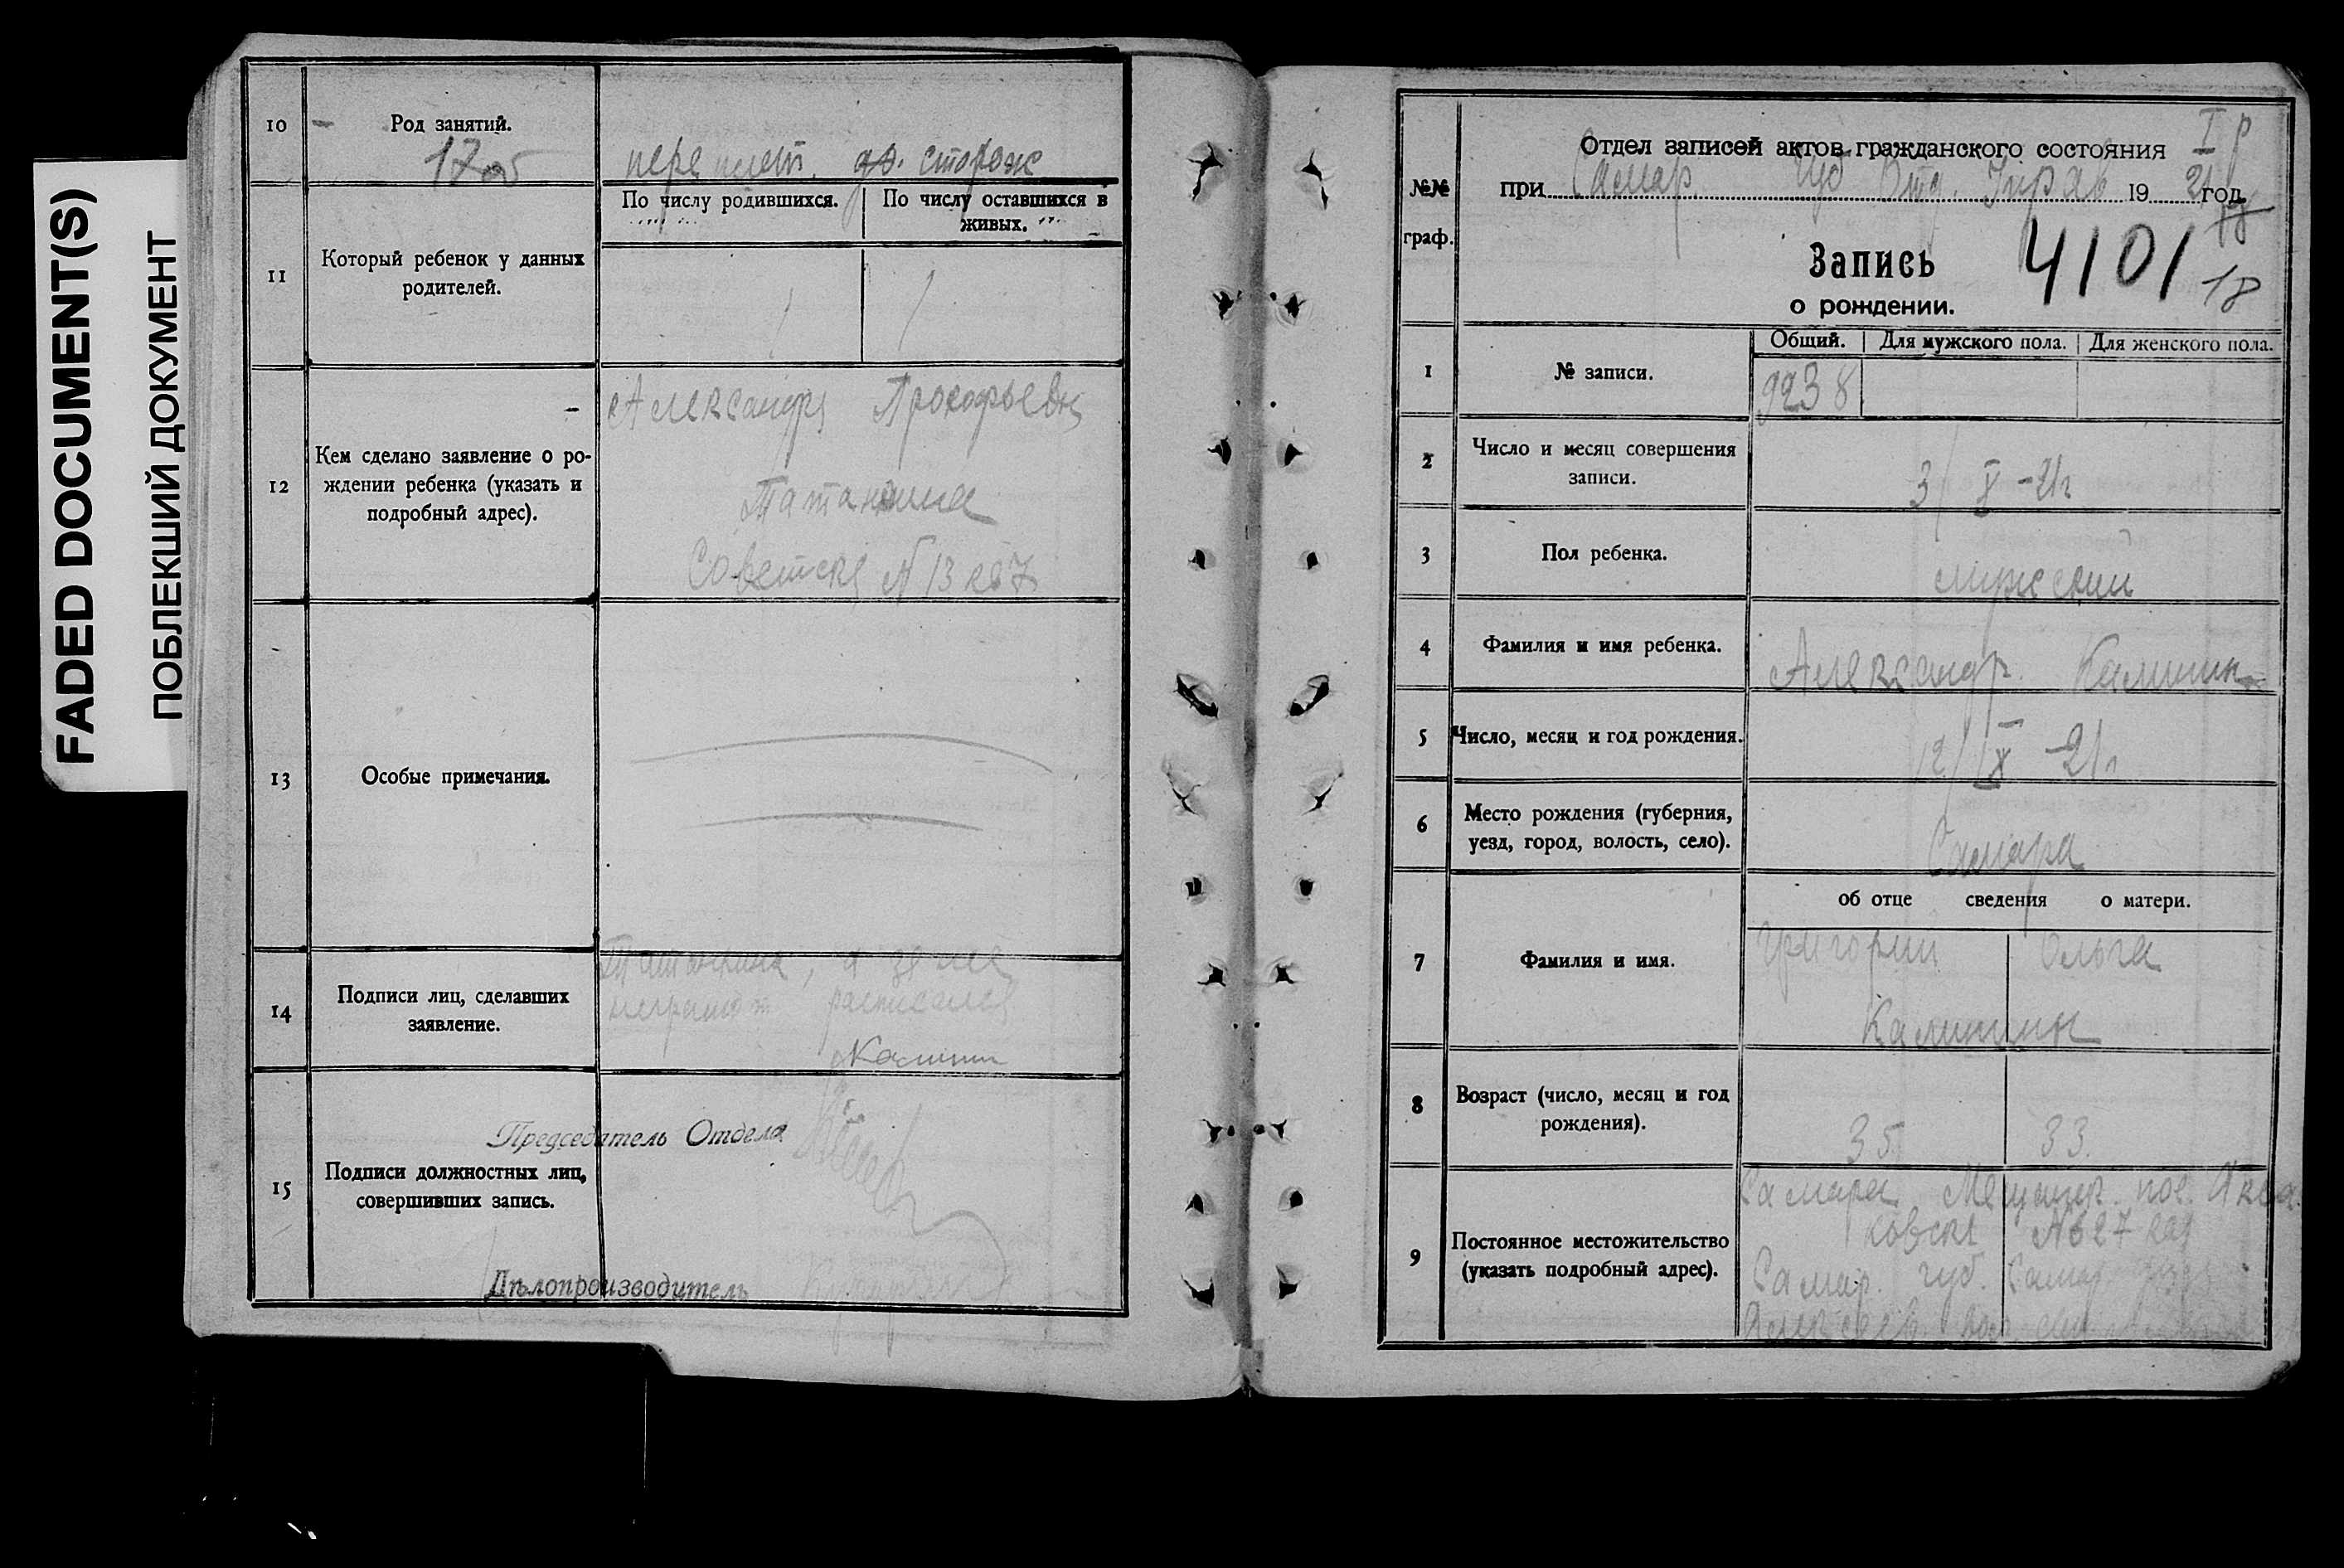 FADED DOCUMENT(S)
ПОБЛЕКШИЙ ДОКУМЕНТ
10
Род занятий.
17 об
сторож
11
Который ребенок у данных
родителей.
По числу родившихся.
По числу оставшихся в
живых.
1
1
12
Кем сделано заявление о ро-
ждении ребенка (указать и
подробный адрес).
Александра Прокофьевна
Советская N 13 кв 7
13
Особые примечания.
14
Подписи лиц, сделавших
заявление.
а за нее
неграмот расписался
Калинин
15
Подписи должностных лиц,
совершивших запись.
Председатель Отдела
Дѣлопроизводитель
№№
граф.
Отдел записей актов гражданского состояния
I р
при Самар. Губ Отд Упр 19 21 год
Запись
о рождении.
4101
18
1
№ записи.
Общий.
Для мужского пола.
Для женского пола.
9238
2
Число и месяц совершения
записи.
3/X-21г
3
Пол ребенка.
мужской
4
Фамилия и имя ребенка.
Александр Калинин
5
Число, месяц и год рождения.
12/IX-21г
6
Место рождения (губерния,
уезд, город, волость, село).
Самара
7
Фамилия и имя.
об отце сведения о матери.
Григорий Ольга
Калинины
8
Возраст (число, месяц и год
рождения).
35 33
9
Постоянное местожительство
(указать подробный адрес).
Самара пос.
№27
Самар. губ. Самар